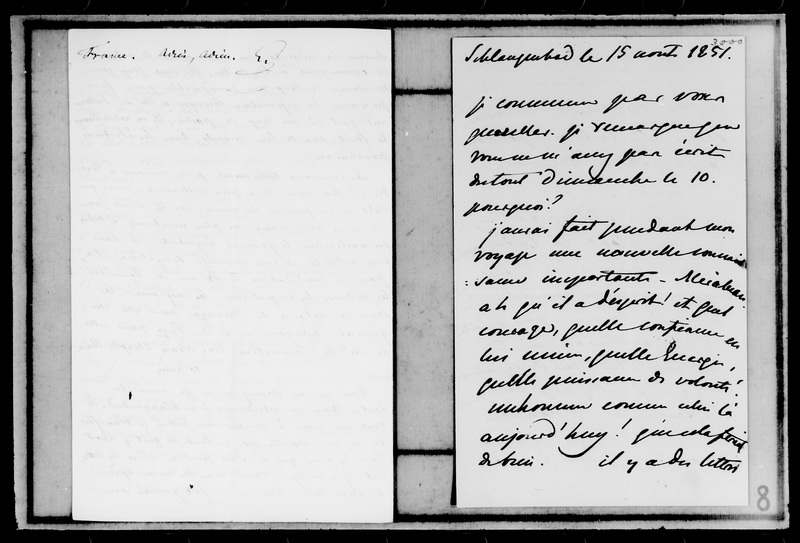 France. Adieu, adieu. G.
2000
Schlangenbad le 15 août 1851.
je commence par vous
quereller. je remarque que
vous ne m'avez pas écrit
du tout Dimanche le 10.
pourquoi?
j'aurai fait pendant mon
voyage une nouvelle connais
:sance importante - Mirabeau.
ah qu'il a d'esprit! et quel
courage, quelle confiance en
lui même, quelle Energie,
quelle puissance de volonté!
un homme comme celui là
aujourd'huy! que cela ferait
de bien. il y a des lettres
8